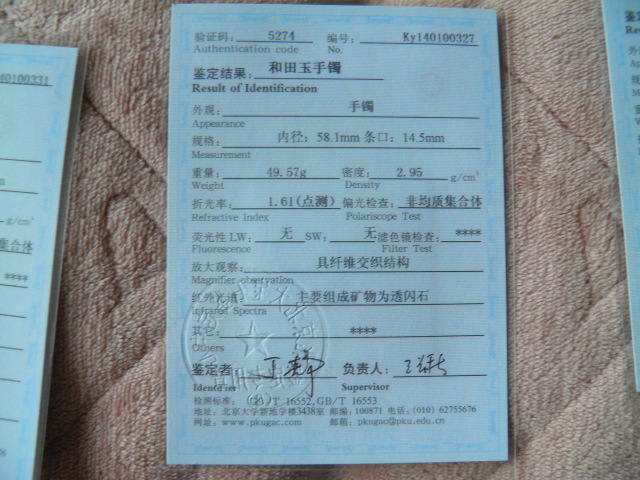 验证码： 5274 编号： Ky140100327
Authentication code No.
鉴定结果： 和田玉手镯
Result of Identification
外观： 手镯
Appearance
规格： 内径：58.1mm 条口：14.5mm
Measurement
重量： 49.57g 密度： 2.95 g/cm³
Weight Density
折光率： 1.61(点测) 偏光检查： 非均质集合体
Refractive Index Polariscope Test
荧光性 LW： 无 SW： 无 滤色镜检查： ****
Fluorescence Filter Test
放大观察： 具纤维交织结构
Magnifier observation
红外光谱： 主要组成矿物为透闪石
Infrared Spectra
其它： ****
Others
鉴定者： 负责人：
Identifier Supervisor
检测标准： GB/T 16552,GB/T 16553
地址：北京大学新地学楼3438室 邮编：100871 电话：(010) 62755676
网址：www.pkugac.com 邮箱：pkugac@pku.edu.cn
40100331
g/cm³
集合体
****